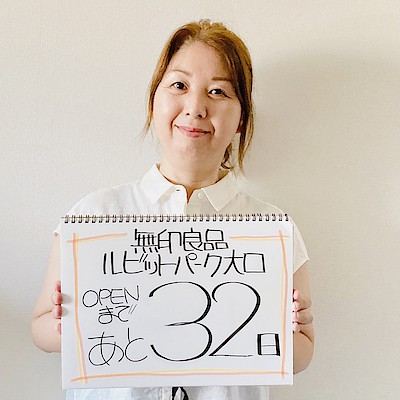 無印良品
ルビットパーク大口
OPEN
まで!!
あと32日